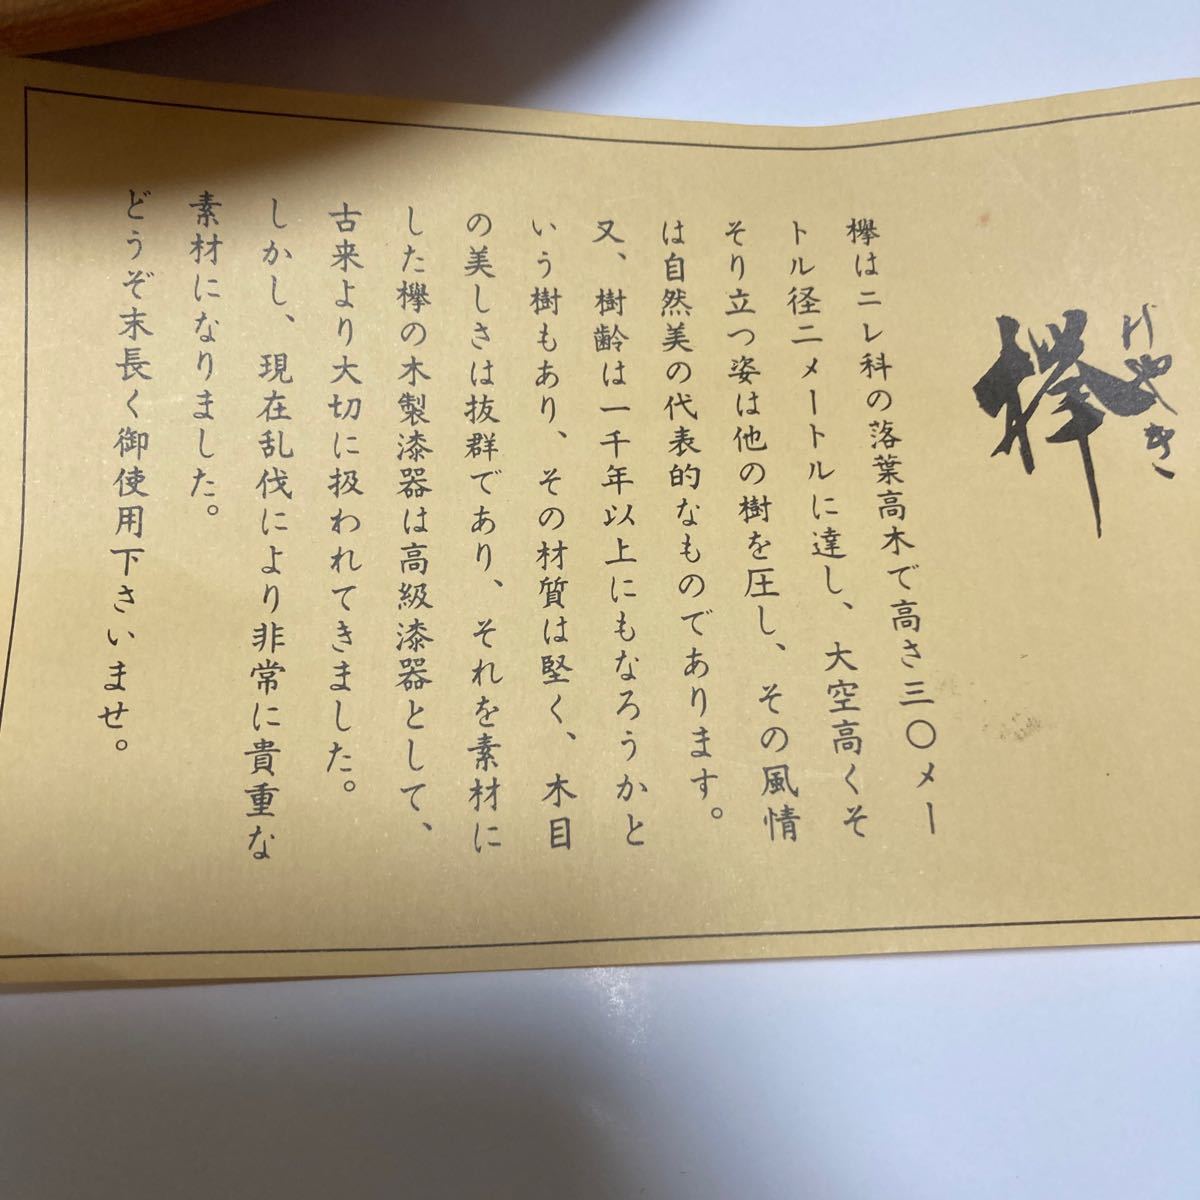 欅
けやき
欅はニレ科の落葉高木で高さ三〇メー
トル径二メートルに達し、大空高くそ
そり立つ姿は他の樹を圧し、その風情
は自然美の代表的なものであります。
又、樹齢は一千年以上にもなろうかと
いう樹もあり、その材質は堅く、木目
の美しさは抜群であり、それを素材に
した欅の木製漆器は高級漆器として、
古来より大切に扱われてきました。
しかし、現在乱伐により非常に貴重な
素材になりました。
どうぞ末長く御使用下さいませ。